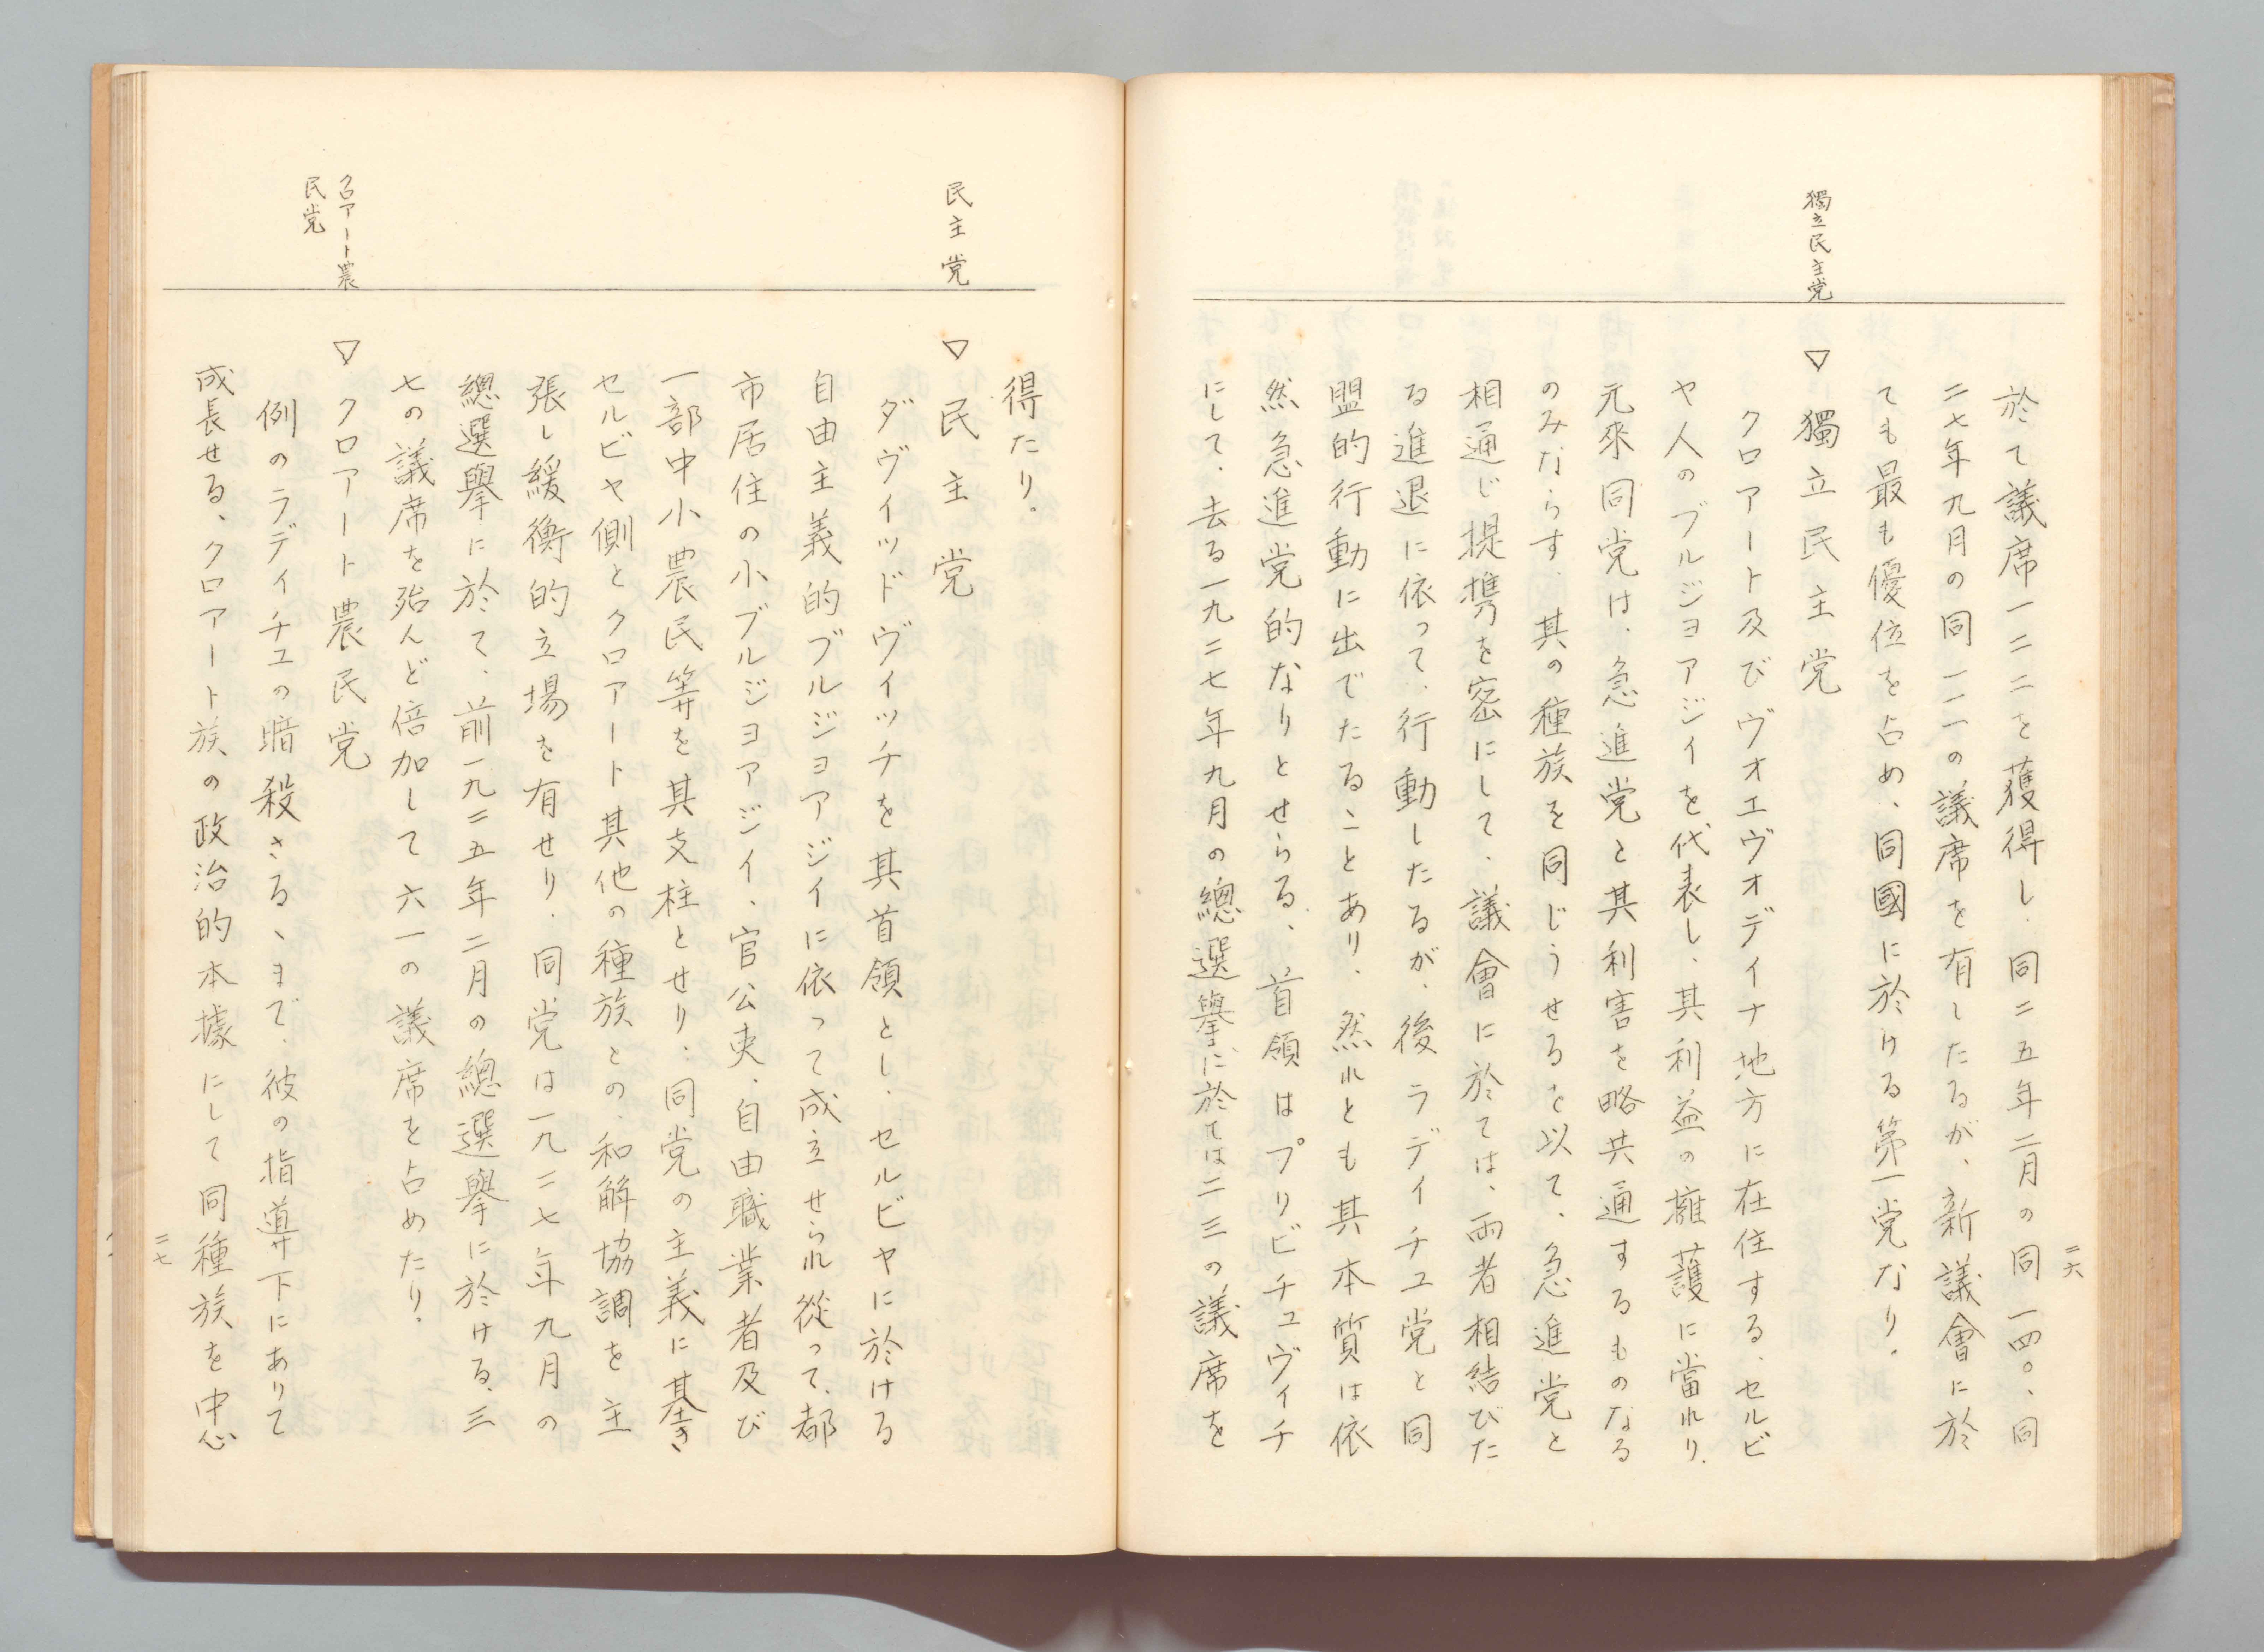 二六
於て議席一二二を獲得し、同二五年二月の同一四〇、同
二七年九月の同一一一の議席を有したるが、新議會に於
ても最も優位を占め、同國に於ける第一党なり。
獨立民主党
▽獨立民主党
クロアート及びヴオエヴオデイナ地方に在住する、セルビ
ヤ人のブルジヨアジイを代表し、其利益の擁護に當れり、
元來同党は、急進党と其利害を略共通するものなる
のみならす、其の種族を同じうせるを以て、急進党と
相通じ提携を密にして、議會に於ては、両者相結びた
る進退に依って、行動したるが、後ラデイチユ党と同
盟的行動に出でたることあり、然れとも其本質は依
然急進党的なりとせらる、首領はプリビチユヴイチ
にして、去る一九二七年九月の總選擧に於ては二三の議席を
得たり。
民主党
▽民主党
ダヴイツドヴイツチを其首領とし、セルビヤに於ける
自由主義的ブルジヨアジイに依って成立せられ從って、都
市居住の小ブルジヨアジイ、官公吏、自由職業者及び
一部中小農民等を其支柱とせり、同党の主義に基き
セルビヤ側とクロアート其他の種族との、和解協調を主
張し緩衡的立場を有せり、同党は一九二七年九月の
總選擧に於て、前一九二五年二月の總選擧に於ける、三
七の議席を殆んど倍加して六一の議席を占めたり。
クロアート農
民党
▽クロアート農民党
例のラデイチユの暗殺さるゝまで、彼の指導下にありて
成長せる、クロアート族の政治的本據にして同種族を中心
二七